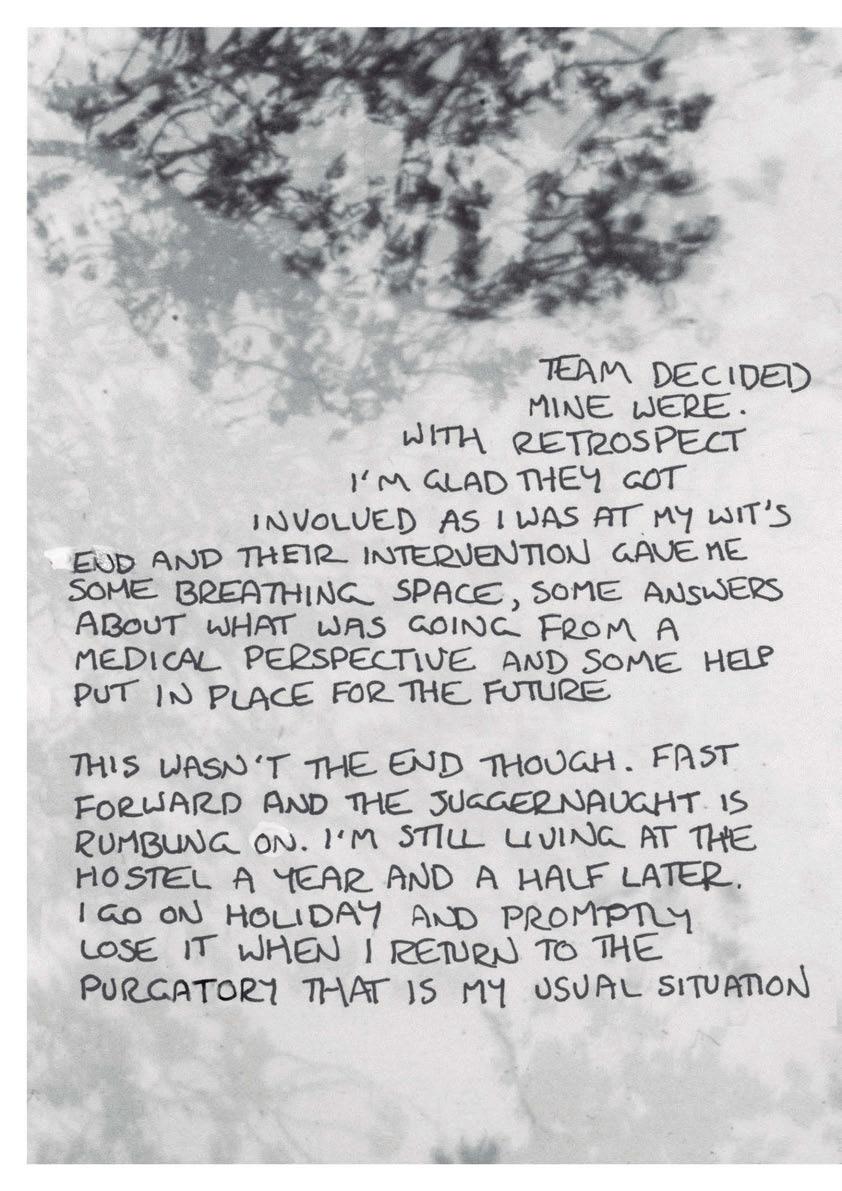 TEAM DECIDED
MINE WERE.
WITH RETROSPECT
I'M GLAD THEY GOT
INVOLVED AS I WAS AT MY WIT'S
END AND THEIR INTERVENTION GAVE ME
SOME BREATHING SPACE, SOME ANSWERS
ABOUT WHAT WAS GOING FROM A
MEDICAL PERSPECTIVE AND SOME HELP
PUT IN PLACE FOR THE FUTURE
THIS WASN'T THE END THOUGH. FAST
FORWARD AND THE JUGGERNAUGHT IS
RUMBLING ON. I'M STILL LIVING AT THE
HOSTEL A YEAR AND A HALF LATER.
I GO ON HOLIDAY AND PROMPTLY
LOSE IT WHEN I RETURN TO THE
PURGATORY THAT IS MY USUAL SITUATION